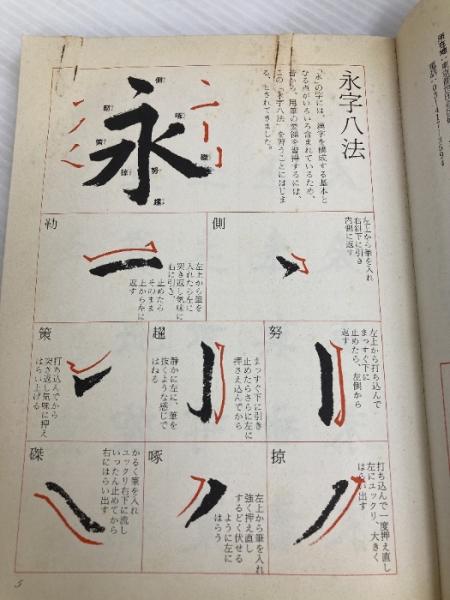 永字八法
「永」の字には、漢字を構成する基本と
なる点がいろいろ含まれているため、
昔から、用筆の要領を習得するには、
この「永字八法」を習うことにはじま
る、とされてきました。
永
側
勒
努
趯
策
掠
啄
磔
側
左上から筆を入れ
右斜下に引き
内側に返す
勒
左上から筆を
入れたら左に
突き返し気味に
右に引き、
止めたら
そのまま
上から左に
返す
努
左上から打ち込んで
まっすぐ下に
止めたら、左側から
返す
趯
まっすぐ下に引き
止めたらさらに左に
押さえ込んでから
静かに左に、筆を
抜くような感じで
はねる
策
打ち込んでから
突き返し気味に押え
はらい上げる
掠
打ち込んで一度押え直し
左にユックリ、大きく
はらい出す
啄
左上から筆を入れ
強く押え直し
するどく伏せる
ように左に
はらう
磔
かるく筆を入れ
ユックリ右下に流し
いったん止めてから
右にはらい出す
5